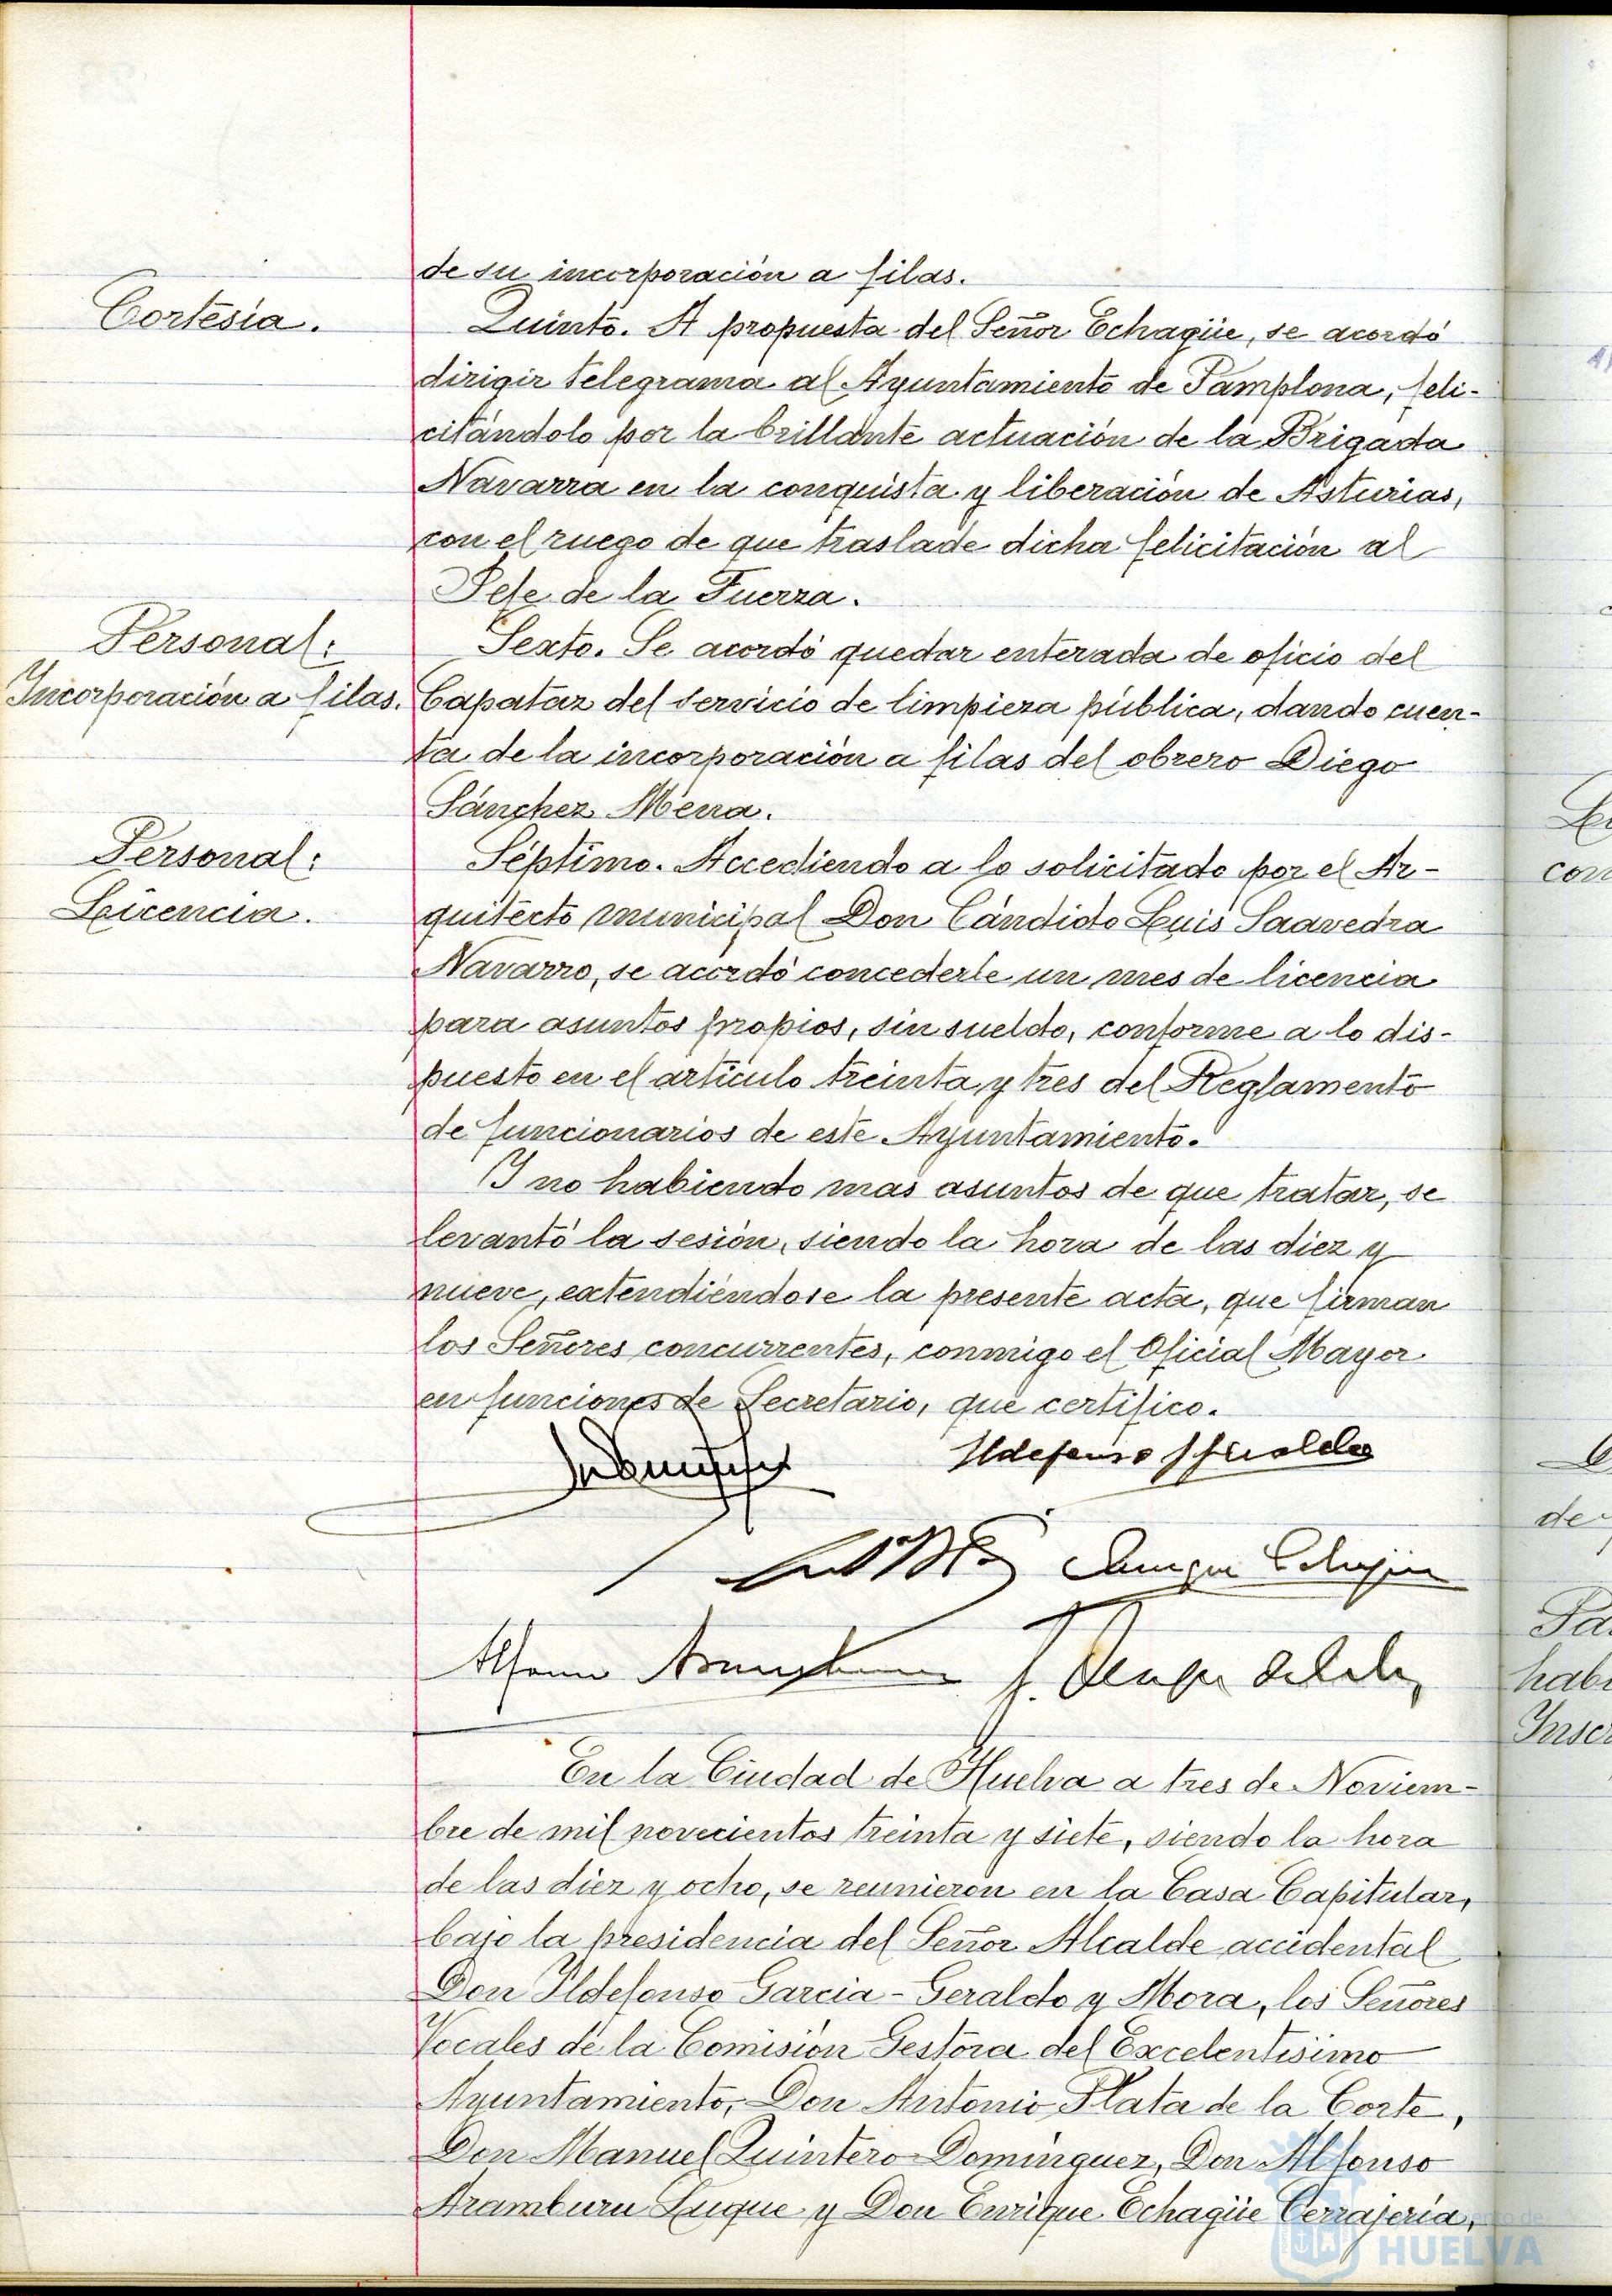 de su incorporación a filas.
Cortesía.
Quinto. A propuesta del Señor Echagüe, se acordó
dirigir telegrama al Ayuntamiento de Pamplona, feli-
citándolo por la brillante actuación de la Brigada
Navarra en la conquista y liberación de Asturias,
con el ruego de que traslade dicha felicitación al
Jefe de la Fuerza.
Personal:
Incorporación a filas.
Sexto. Se acordó quedar enterada de oficio del
Capataz del servicio de limpieza pública, dando cuen-
ta de la incorporación a filas del obrero Diego
Sánchez Mena.
Personal:
Licencia.
Séptimo. Accediendo a lo solicitado por el Ar-
quitecto municipal Don Cándido Luis Saavedra
Navarro, se acordó concederle un mes de licencia
para asuntos propios, sin sueldo, conforme a lo dis-
puesto en el artículo treinta y tres del Reglamento
de funcionarios de este Ayuntamiento.
Y no habiendo mas asuntos de que tratar, se
levantó la sesión, siendo la hora de las diez y
nueve, extendiéndose la presente acta, que firman
los Señores concurrentes, conmigo el Oficial Mayor
en funciones de Secretario, que certifico.
Ildefonso
Enrique Echagüe
Alfonso Aramburu
En la Ciudad de Huelva a tres de Noviem-
bre de mil novecientos treinta y siete, siendo la hora
de las diez y ocho, se reunieron en la Casa Capitular,
bajo la presidencia del Señor Alcalde accidental
Don Ildefonso Garcia-Geraldo y Mora, los Señores
Vocales de la Comisión Gestora del Excelentísimo
Ayuntamiento, Don Antonio Plata de la Corte,
Don Manuel Quintero Domínguez, Don Alfonso
Aramburu Luque y Don Enrique Echagüe Cerrajería,
HUELVA